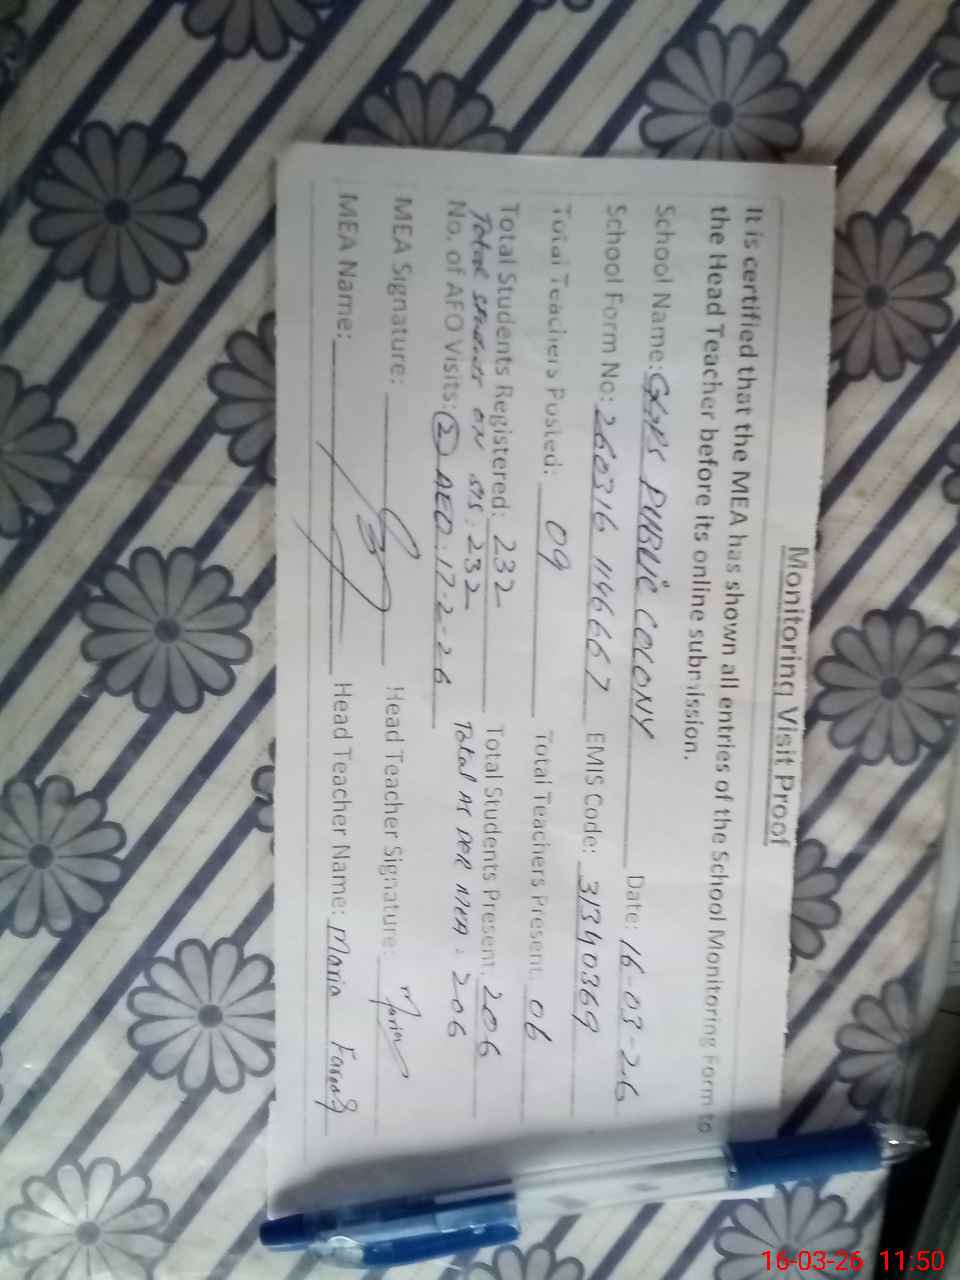 Monitoring Visit Proof
It is certified that the MEA has shown all entries of the School Monitoring Form to
the Head Teacher before its online submission.
School Name: GGPS PUBLIC COLONY Date: 16-03-26
School Form No: 260316 114667 EMIS Code: 31340369
Total Teachers Posted: 09 Total Teachers Present: 06
Total Students Registered: 232 Total Students Present: 206
Total students on SIS: 232 Total AS PER MEA: 206
No. of AFO Visits: (2) AEO: 17-2-26
MEA Signature: Head Teacher Signature: Maria
MEA Name: Head Teacher Name: Maria Farooq
16-03-26 11:50